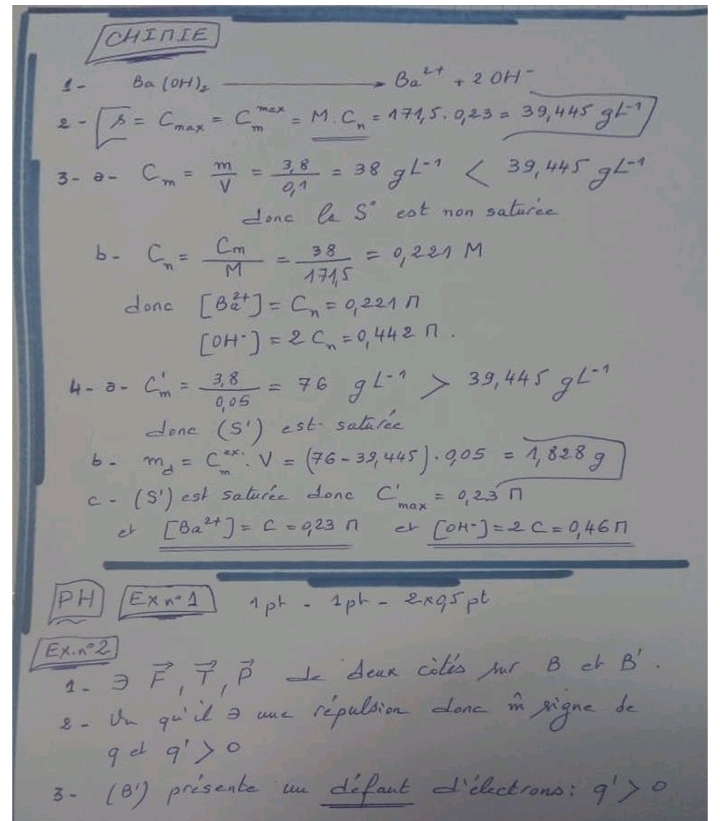 CHIMIE
1- Ba(OH)₂ → Ba²⁺ + 2 OH⁻
2- s = Cmax = Cm^max = M.Cn = 171,5.0,23 = 39,445 gL⁻¹
3- a- Cm = m/V = 3,8/0,1 = 38 gL⁻¹ < 39,445 gL⁻¹
donc la S° est non saturée
b- Cn = Cm/M = 38/171,5 = 0,221 M
donc [Ba²⁺] = Cn = 0,221 M
[OH⁻] = 2 Cn = 0,442 M.
4- a- C'm = 3,8/0,05 = 76 gL⁻¹ > 39,445 gL⁻¹
donc (S') est saturée
b- md = Cm^ex. . V = (76-39,445).0,05 = 1,828 g
c- (S') est saturée donc C'max = 0,23 M
et [Ba²⁺] = C = 0,23 M et [OH⁻] = 2 C = 0,46 M
PH Ex n°1 1pt - 1pt - 2x0,5 pt
Ex.n°2
1- ∃ F⃗, T⃗, P⃗ de deux côtés sur B et B'.
2- Vu qu'il ∃ une répulsion donc m̂ signe de
q et q' > 0
3- (B') présente un défaut d'électrons: q' > 0